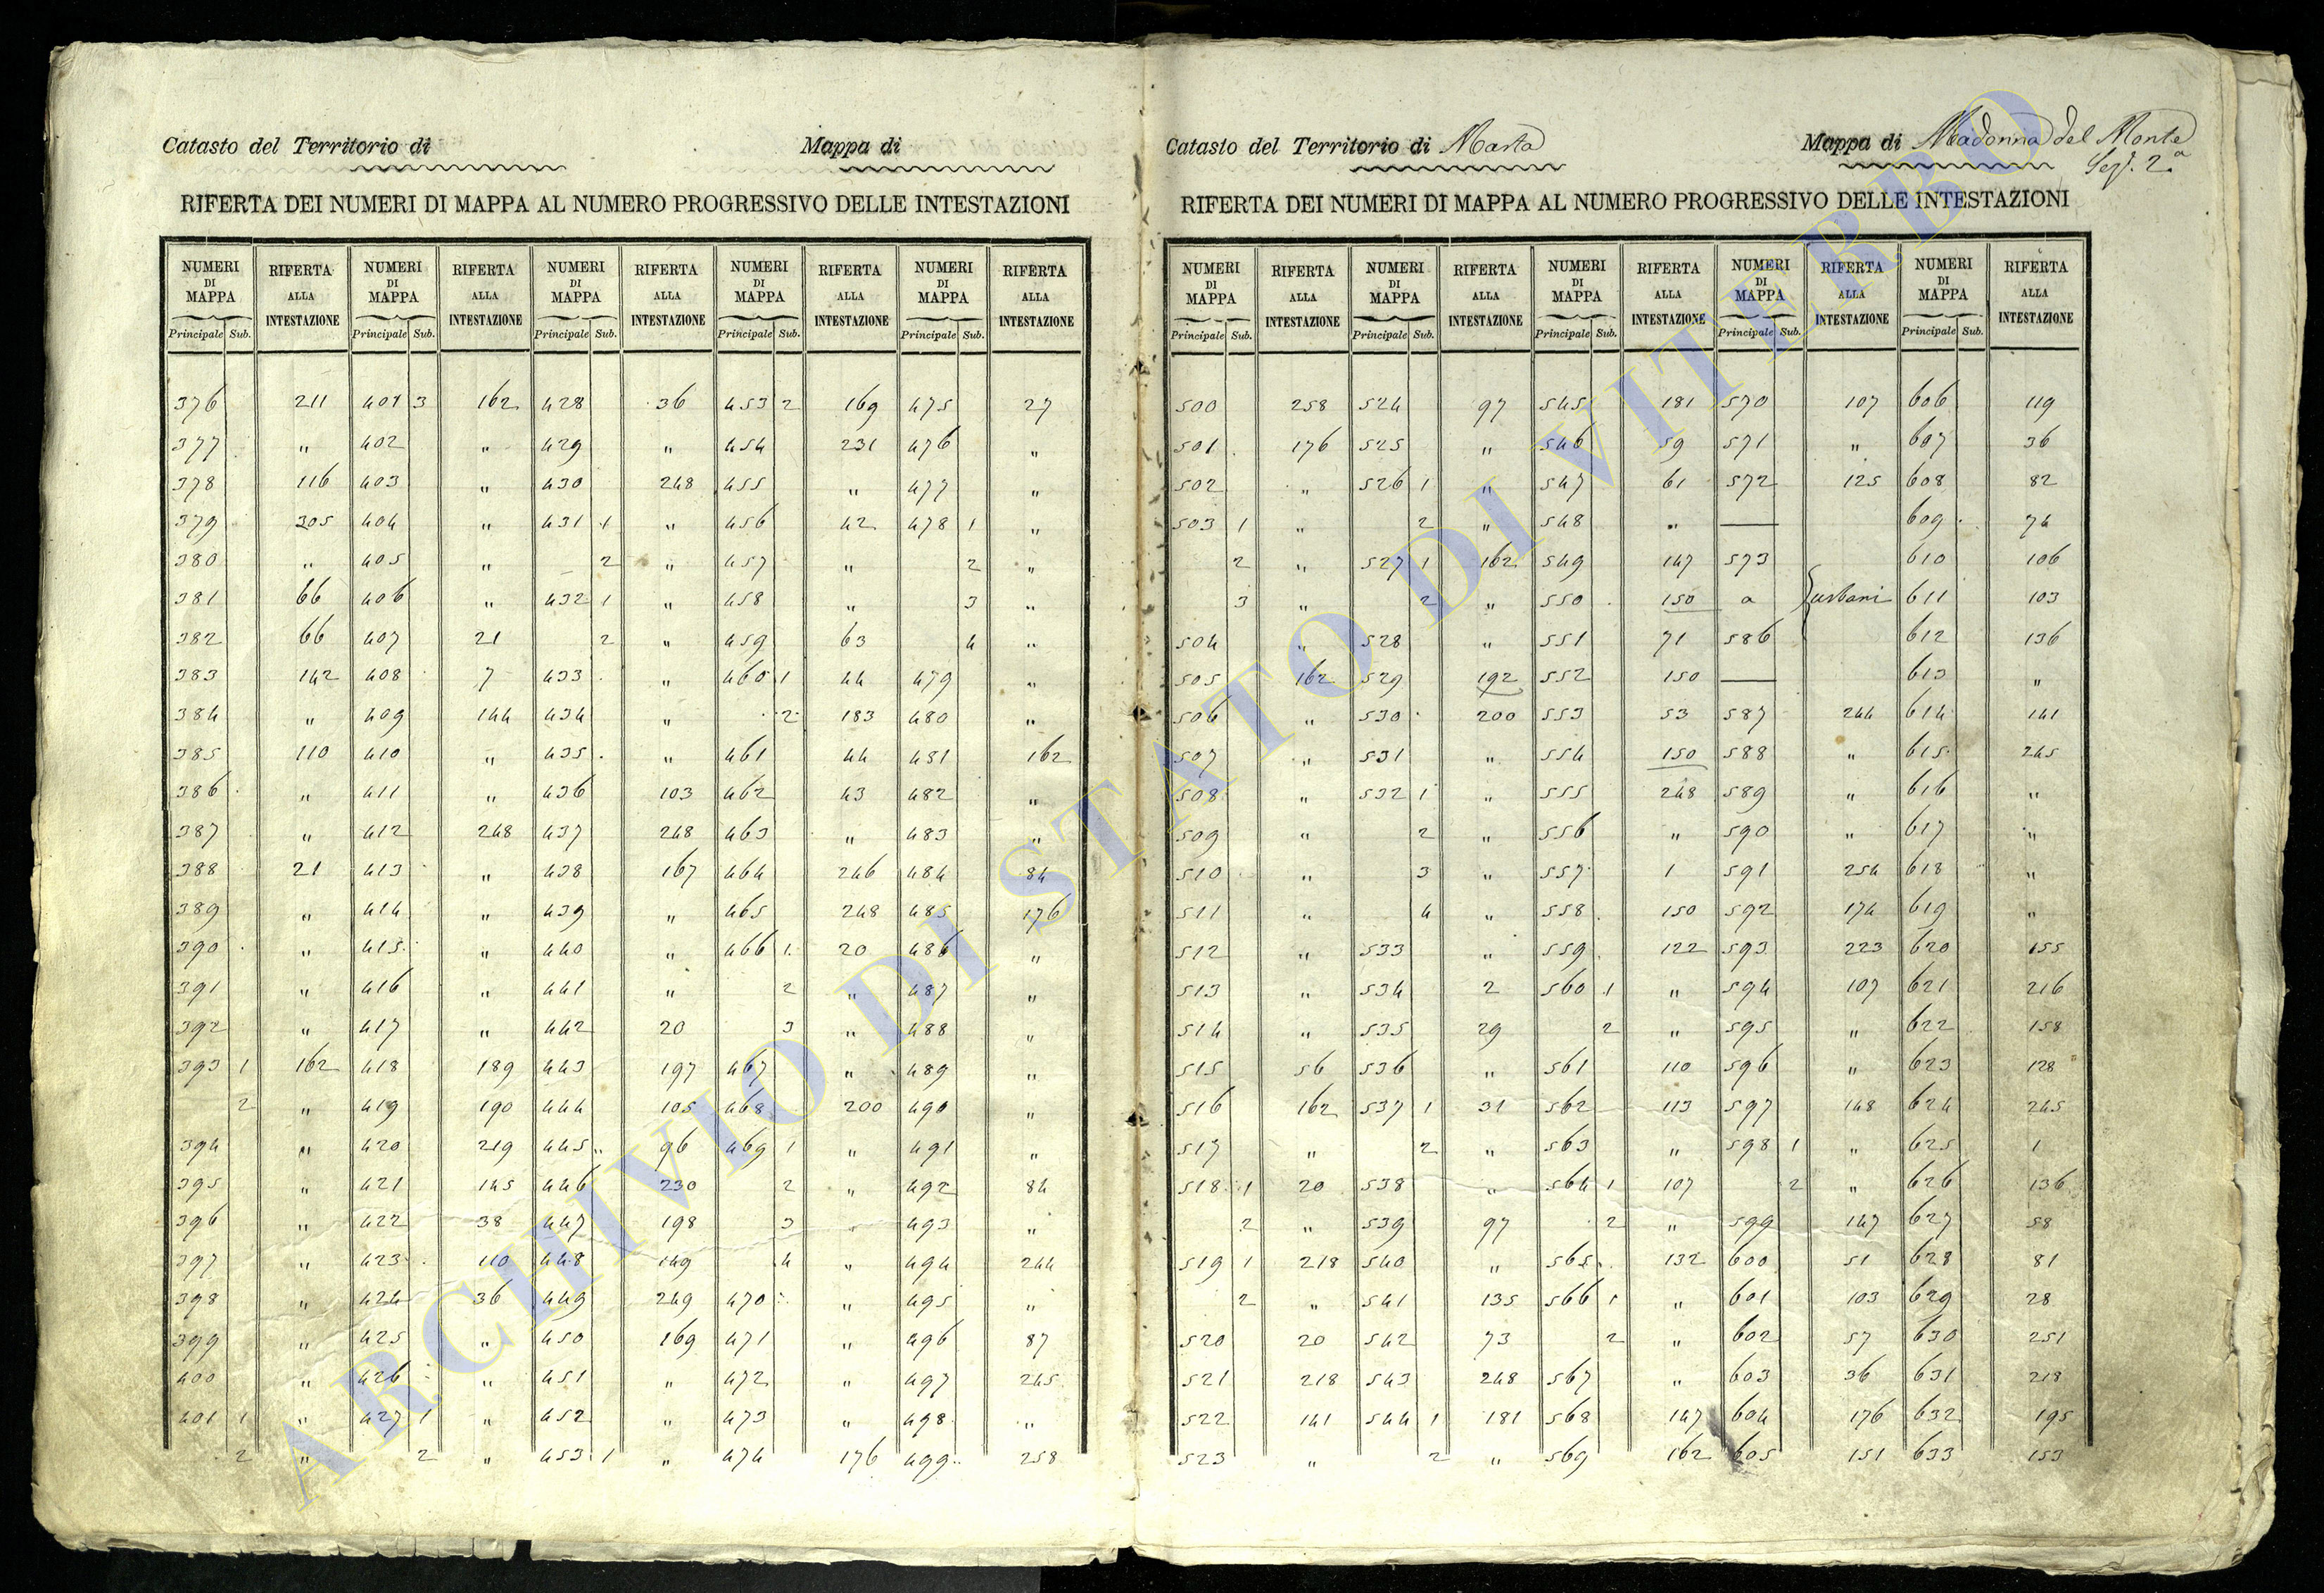 Catasto del Territorio di Mappa di
RIFERTA DEI NUMERI DI MAPPA AL NUMERO PROGRESSIVO DELLE INTESTAZIONI
NUMERI DI MAPPA RIFERTA ALLA INTESTAZIONE NUMERI DI MAPPA RIFERTA ALLA INTESTAZIONE NUMERI DI MAPPA RIFERTA ALLA INTESTAZIONE NUMERI DI MAPPA RIFERTA ALLA INTESTAZIONE NUMERI DI MAPPA RIFERTA ALLA INTESTAZIONE
Principale Sub. Principale Sub. Principale Sub. Principale Sub. Principale Sub.
376 211 401 3 162 428 36 453 2 169 475 27
377 " 402 " 429 " 454 231 476 "
378 116 403 " 430 248 455 " 477 "
379 305 404 " 431 1 " 456 42 478 1 "
380 " 405 " 2 " 457 " 2 "
381 66 406 " 432 1 " 458 " 3 "
382 66 407 21 2 " 459 63 4 "
383 142 408 7 433 " 460 1 44 479 "
384 " 409 144 434 " 2 183 480 "
385 110 410 " 435 " 461 44 481 162
386 " 411 " 436 103 462 43 482 "
387 " 412 248 437 248 463 " 483 "
388 21 413 " 438 167 464 246 484 84
389 " 414 " 439 " 465 248 485 176
390 " 415 " 440 " 466 1 20 486 "
391 " 416 " 441 " 2 " 487 "
392 " 417 " 442 20 3 " 488 "
393 1 162 418 189 443 197 467 " 489 "
2 " 419 190 444 105 468 200 490 "
394 " 420 219 445 96 469 1 " 491 "
395 " 421 145 446 230 2 " 492 84
396 " 422 38 447 198 3 " 493 "
397 " 423 110 448 149 4 " 494 244
398 " 424 36 449 249 470 " 495 "
399 " 425 " 450 169 471 " 496 87
400 " 426 " 451 " 472 " 497 245
401 1 " 427 1 " 452 " 473 " 498 "
2 " 2 " 453 1 " 474 176 499 258
Catasto del Territorio di Marta Mappa di Madonna del Monte
Sez. 2a
RIFERTA DEI NUMERI DI MAPPA AL NUMERO PROGRESSIVO DELLE INTESTAZIONI
NUMERI DI MAPPA RIFERTA ALLA INTESTAZIONE NUMERI DI MAPPA RIFERTA ALLA INTESTAZIONE NUMERI DI MAPPA RIFERTA ALLA INTESTAZIONE NUMERI DI MAPPA RIFERTA ALLA INTESTAZIONE NUMERI DI MAPPA RIFERTA ALLA INTESTAZIONE
Principale Sub. Principale Sub. Principale Sub. Principale Sub. Principale Sub.
500 258 524 97 545 181 570 107 606 119
501 176 525 " 546 59 571 " 607 36
502 " 526 1 " 547 61 572 125 608 82
503 1 " 2 " 548 " — 609 74
2 " 527 1 162 549 147 573 610 106
3 " 2 " 550 150 a urbani 611 103
504 " 528 " 551 71 586 612 136
505 162 529 192 552 150 — 613 "
506 " 530 200 553 53 587 244 614 141
507 " 531 " 554 150 588 " 615 245
508 " 532 1 " 555 248 589 " 616 "
509 " 2 " 556 " 590 " 617 "
510 " 3 " 557 1 591 254 618 "
511 " 4 " 558 150 592 174 619 "
512 " 533 " 559 122 593 223 620 155
513 " 534 2 560 1 " 594 107 621 216
514 " 535 29 2 " 595 " 622 158
515 56 536 " 561 110 596 " 623 128
516 162 537 1 31 562 113 597 148 624 245
517 " 2 " 563 " 598 1 " 625 1
518 1 20 538 " 564 1 107 2 " 626 136
2 " 539 97 2 " 599 147 627 58
519 1 218 540 " 565 132 600 51 628 81
2 " 541 135 566 1 " 601 103 629 28
520 20 542 73 2 " 602 57 630 251
521 218 543 248 567 " 603 36 631 218
522 141 544 1 181 568 147 604 176 632 195
523 " 2 " 569 162 605 151 633 153
ARCHIVIO DI STATO DI VITERBO